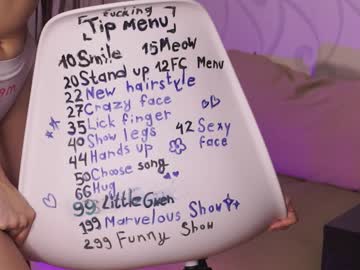 fucking
Tip menu
10 Smile 15 Meow
20 Stand up 12 FC Menu
22 New hairstyle
27 Crazy face
35 Lick finger
40 Show legs 42 Sexy face
44 Hands up
50 Choose song
66 Hug
99 Little Gwen
199 Marvelous Show
299 Funny Show